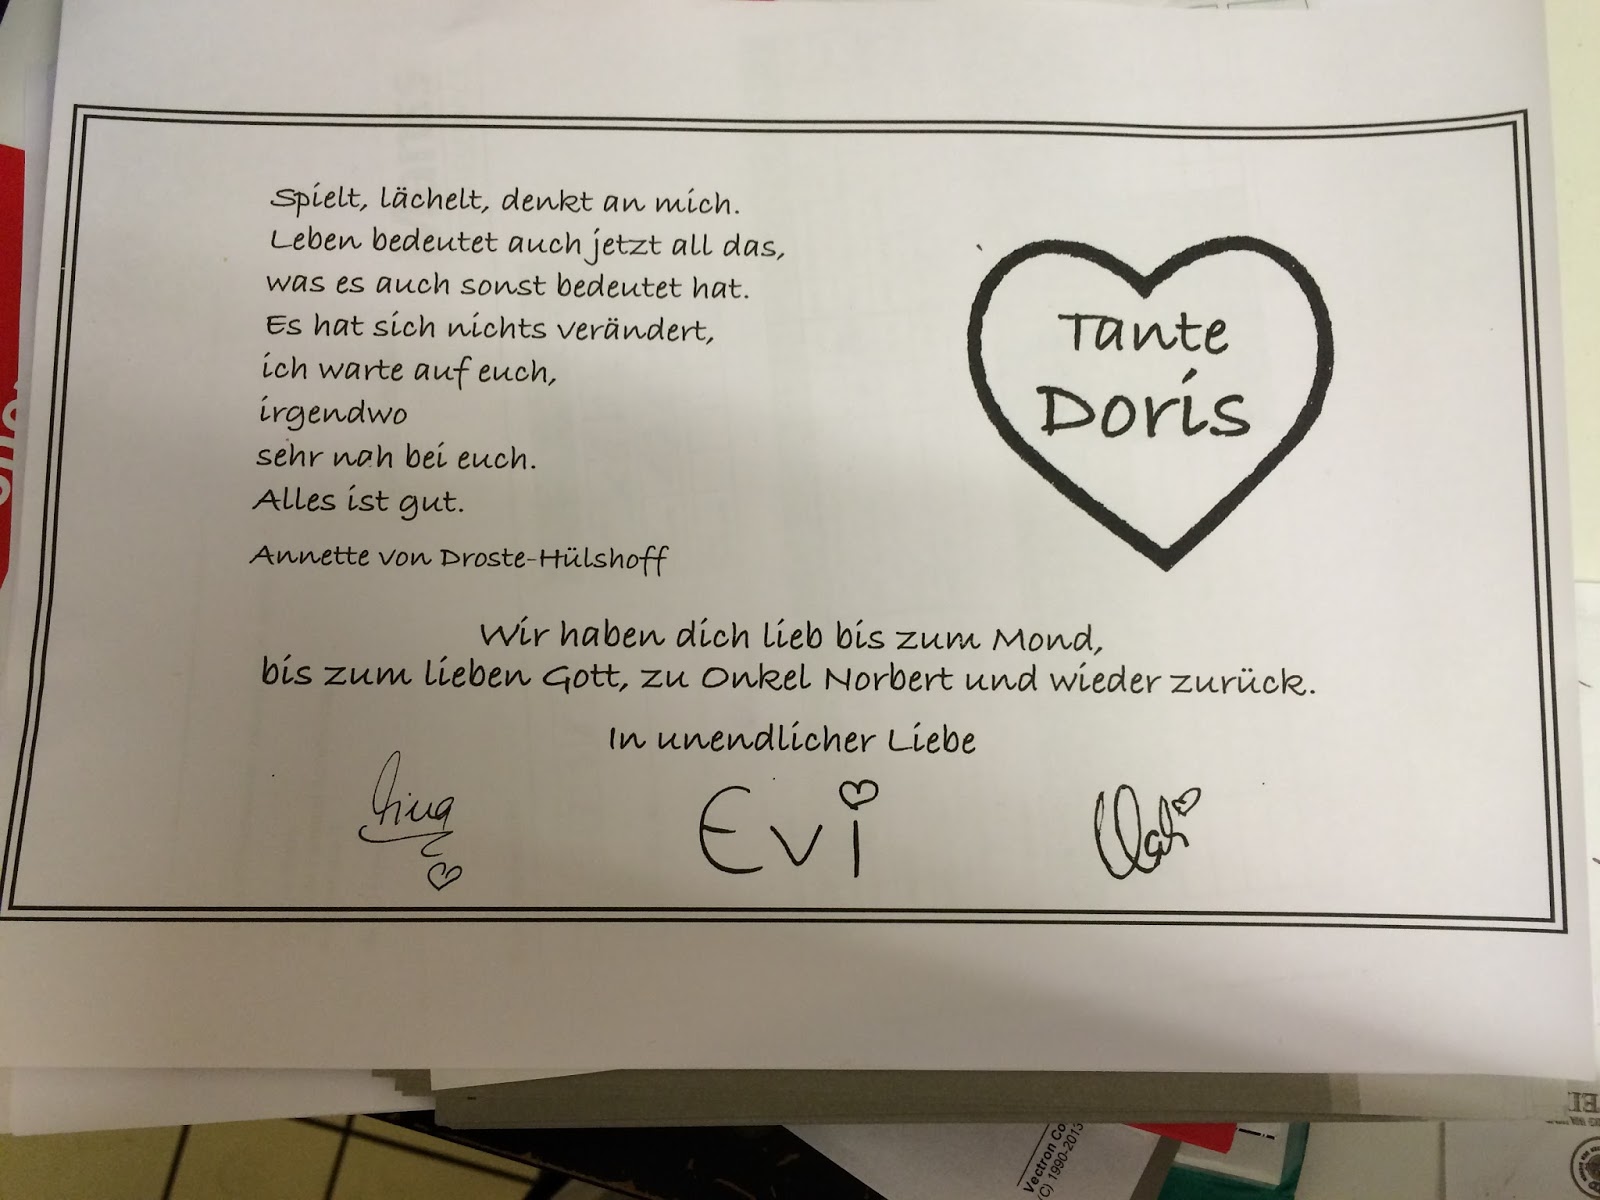 Spielt, lächelt, denkt an mich.
Leben bedeutet auch jetzt all das,
was es auch sonst bedeutet hat.
Es hat sich nichts verändert,
ich warte auf euch,
irgendwo
sehr nah bei euch.
Alles ist gut.
Annette von Droste-Hülshoff
Tante
Doris
Wir haben dich lieb bis zum Mond,
bis zum lieben Gott, zu Onkel Norbert und wieder zurück.
In unendlicher Liebe
Evi
Vectron Co
(C) 1990-2013